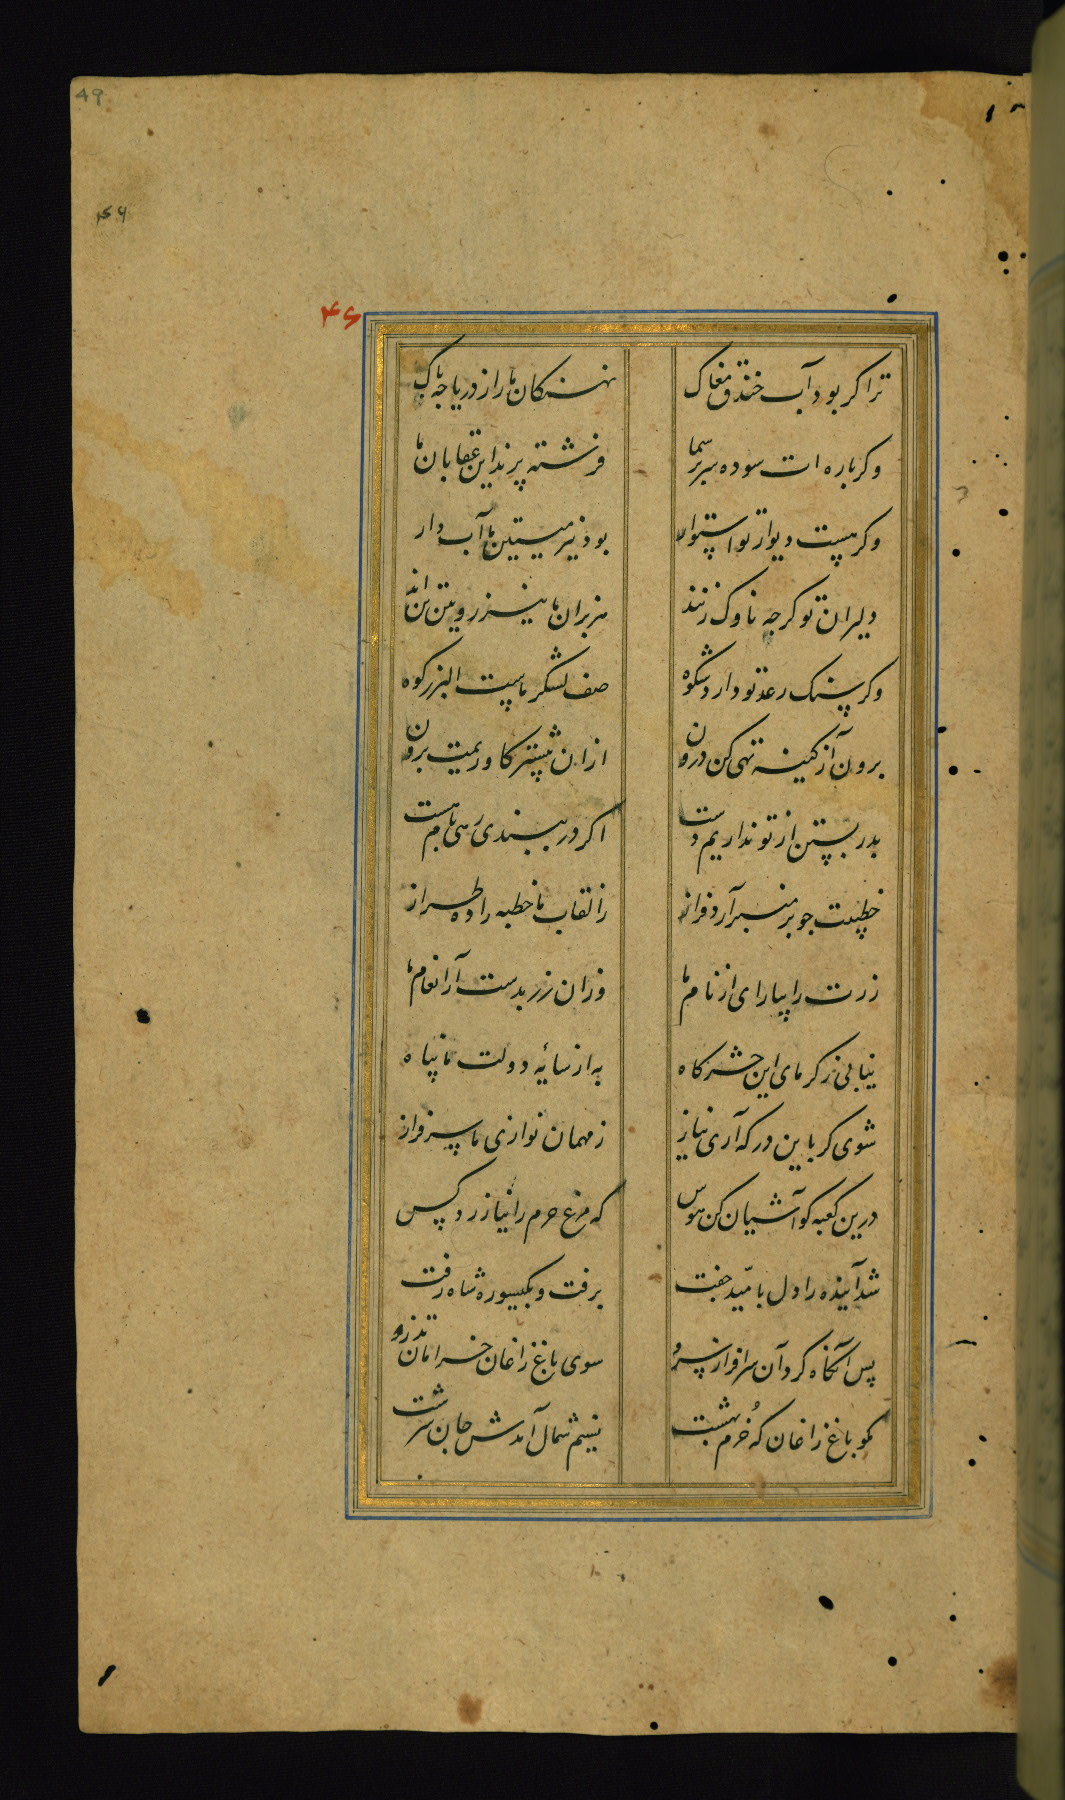 49
۴۶
ترا کر بود آب خندق مغاک نهنکان ما را ز دریا چه باک
وکر باره ات سوده سر بر سما فرشته پرند این عقابان ما
وکر هست دیوار تو استوار بود نیز میتین ما آب دار
دلیران تو کرچه ناوک زنند هزبران ما نیز رویین تن اند
وکر سنک رعد تو دارد شکوه صف لشکر ماست البرز کوه
برون آ ز کینه تهی کن درون ازان پیشتر کاوریمت برون
بدر بستن از تو نداریم دست اکر در ببندی رهی بام هست
خطیبت چو بر منبر آرد فراز ز القاب ما خطبه را ده طراز
زرت را بیارای از نام ما وزان زر بدست آر انعام ما
نیابی ز کرمای این حشرکاه به از سایهٔ دولت ما پناه
شوی کر باین درکه آری نیاز ز مهمان نوازی ما سرفراز
درین کعبه کو آشیان کن هوس که مرغ حرم را نیازرد کس
شد آینده را دل بامّید جفت برفت و بکیسو ره شاه رفت
پس آنکاه کرد آن سرافراز سرو سوی باغ زاغان خرامان تذرو
مکو باغ زاغان که خرم بهشت نسیم شمال آمدش جان سرشت